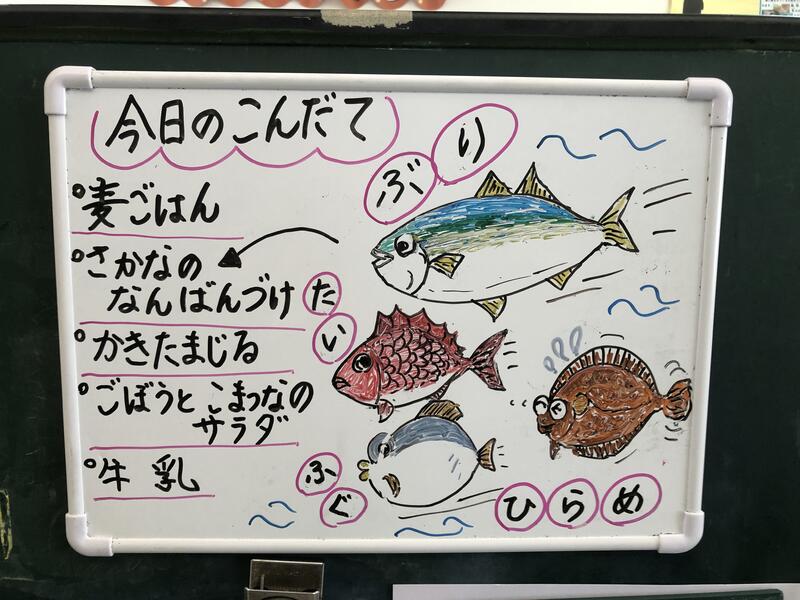 今日のこんだて
°麦ごはん
°さかなの
なんばんづけ
°かきたまじる
°ごぼうとこまつなの
サラダ
°牛乳
ぶり
たい
ふぐ
ひらめ